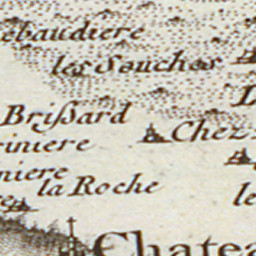 ebaudiere
les Souches
D
Brißard
Chez
riniere
niere
la Roche
le
Chatea